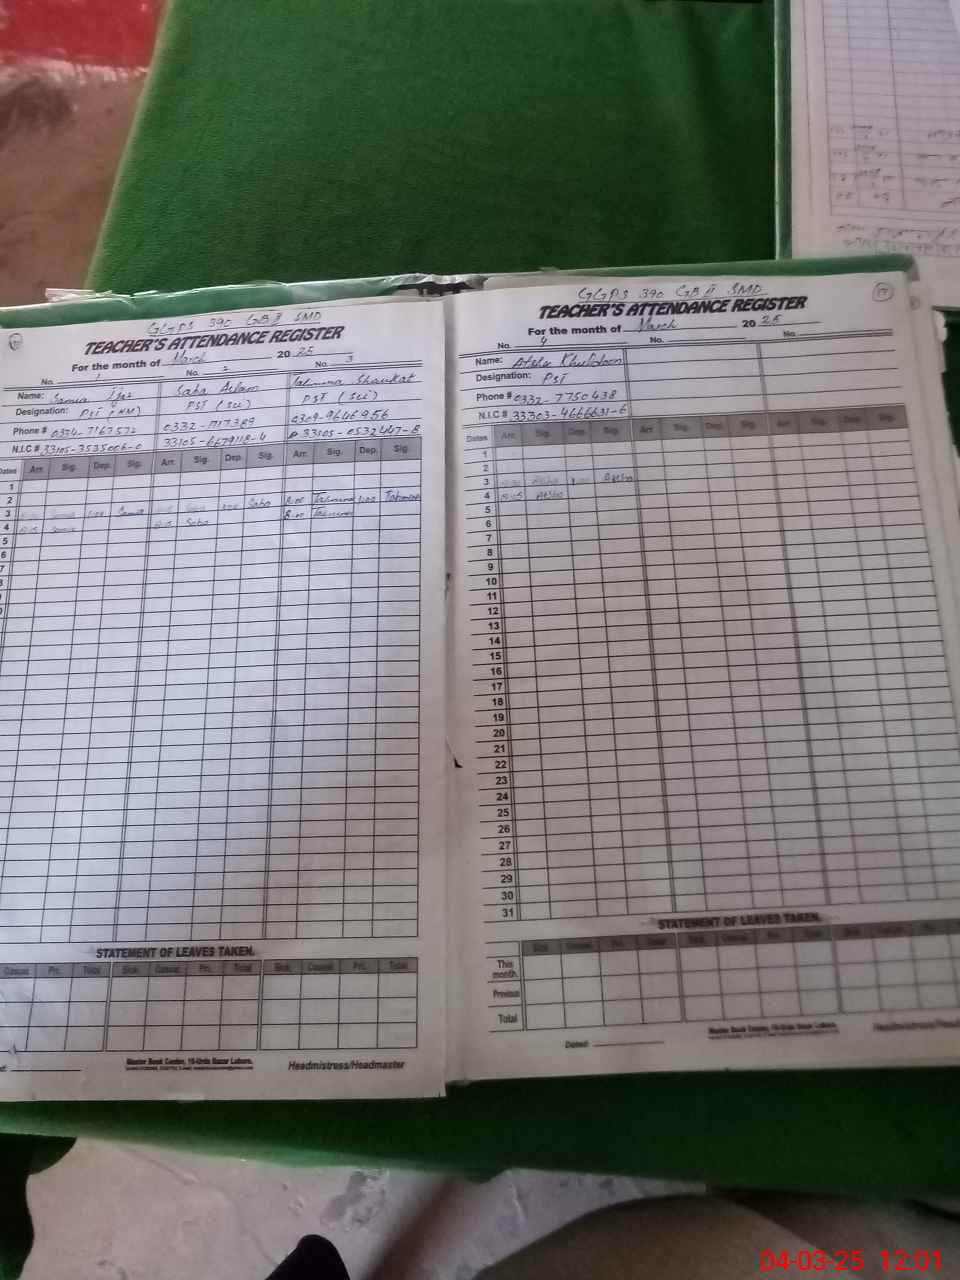 GGPS 390 GB II SMD
TEACHER'S ATTENDANCE REGISTER
For the month of March 2025
No. 1 No. 2 No. 3
Name: Samia Ijaz Saba Aslam Tahmina Shaukat
Designation: PST (HM) PST (Sci) PST (Sci)
Phone # 0334-7167572 0332-7717389 0309-9646956
N.I.C # 33105-3535006-0 33105-6679118-4 33105-0532447-8
Dates Arr. Sig. Dep. Sig. Arr. Sig. Dep. Sig. Arr. Sig. Dep. Sig.
1
2
3 Samia 1:00 Samia Saba 1:00 Saba 8:00 Tahmina 1:00 Tahmina
4 8:15 Samia 8:15 Saba 8:10 Tahmina
5
6
7
8
STATEMENT OF LEAVES TAKEN.
Casual Pri. Total Sick. Casual Pri. Total Sick. Casual Pri. Total
Master Book Center, 16-Urdu Bazar Lahore.
Headmistress/Headmaster
GGPS 390 GB II SMD
TEACHER'S ATTENDANCE REGISTER
For the month of March 2025
No. 4 No. No.
Name:
Designation: PST
Phone # 0332-7750438
N.I.C # 33303-4666631-6
Dates Arr. Sig. Dep. Sig. Arr. Sig. Dep. Sig. Arr. Sig. Dep. Sig.
1
2
3 1:00
4 8:15
5
6
7
8
9
10
11
12
13
14
15
16
17
18
19
20
21
22
23
24
25
26
27
28
29
30
31
STATEMENT OF LEAVES TAKEN.
Sick. Casual Pri. Total Sick. Casual Pri. Total Sick. Casual Pri.
This month
Previous
Total
Dated:
Master Book Center, 16-Urdu Bazar Lahore.
04-03-25 12:01